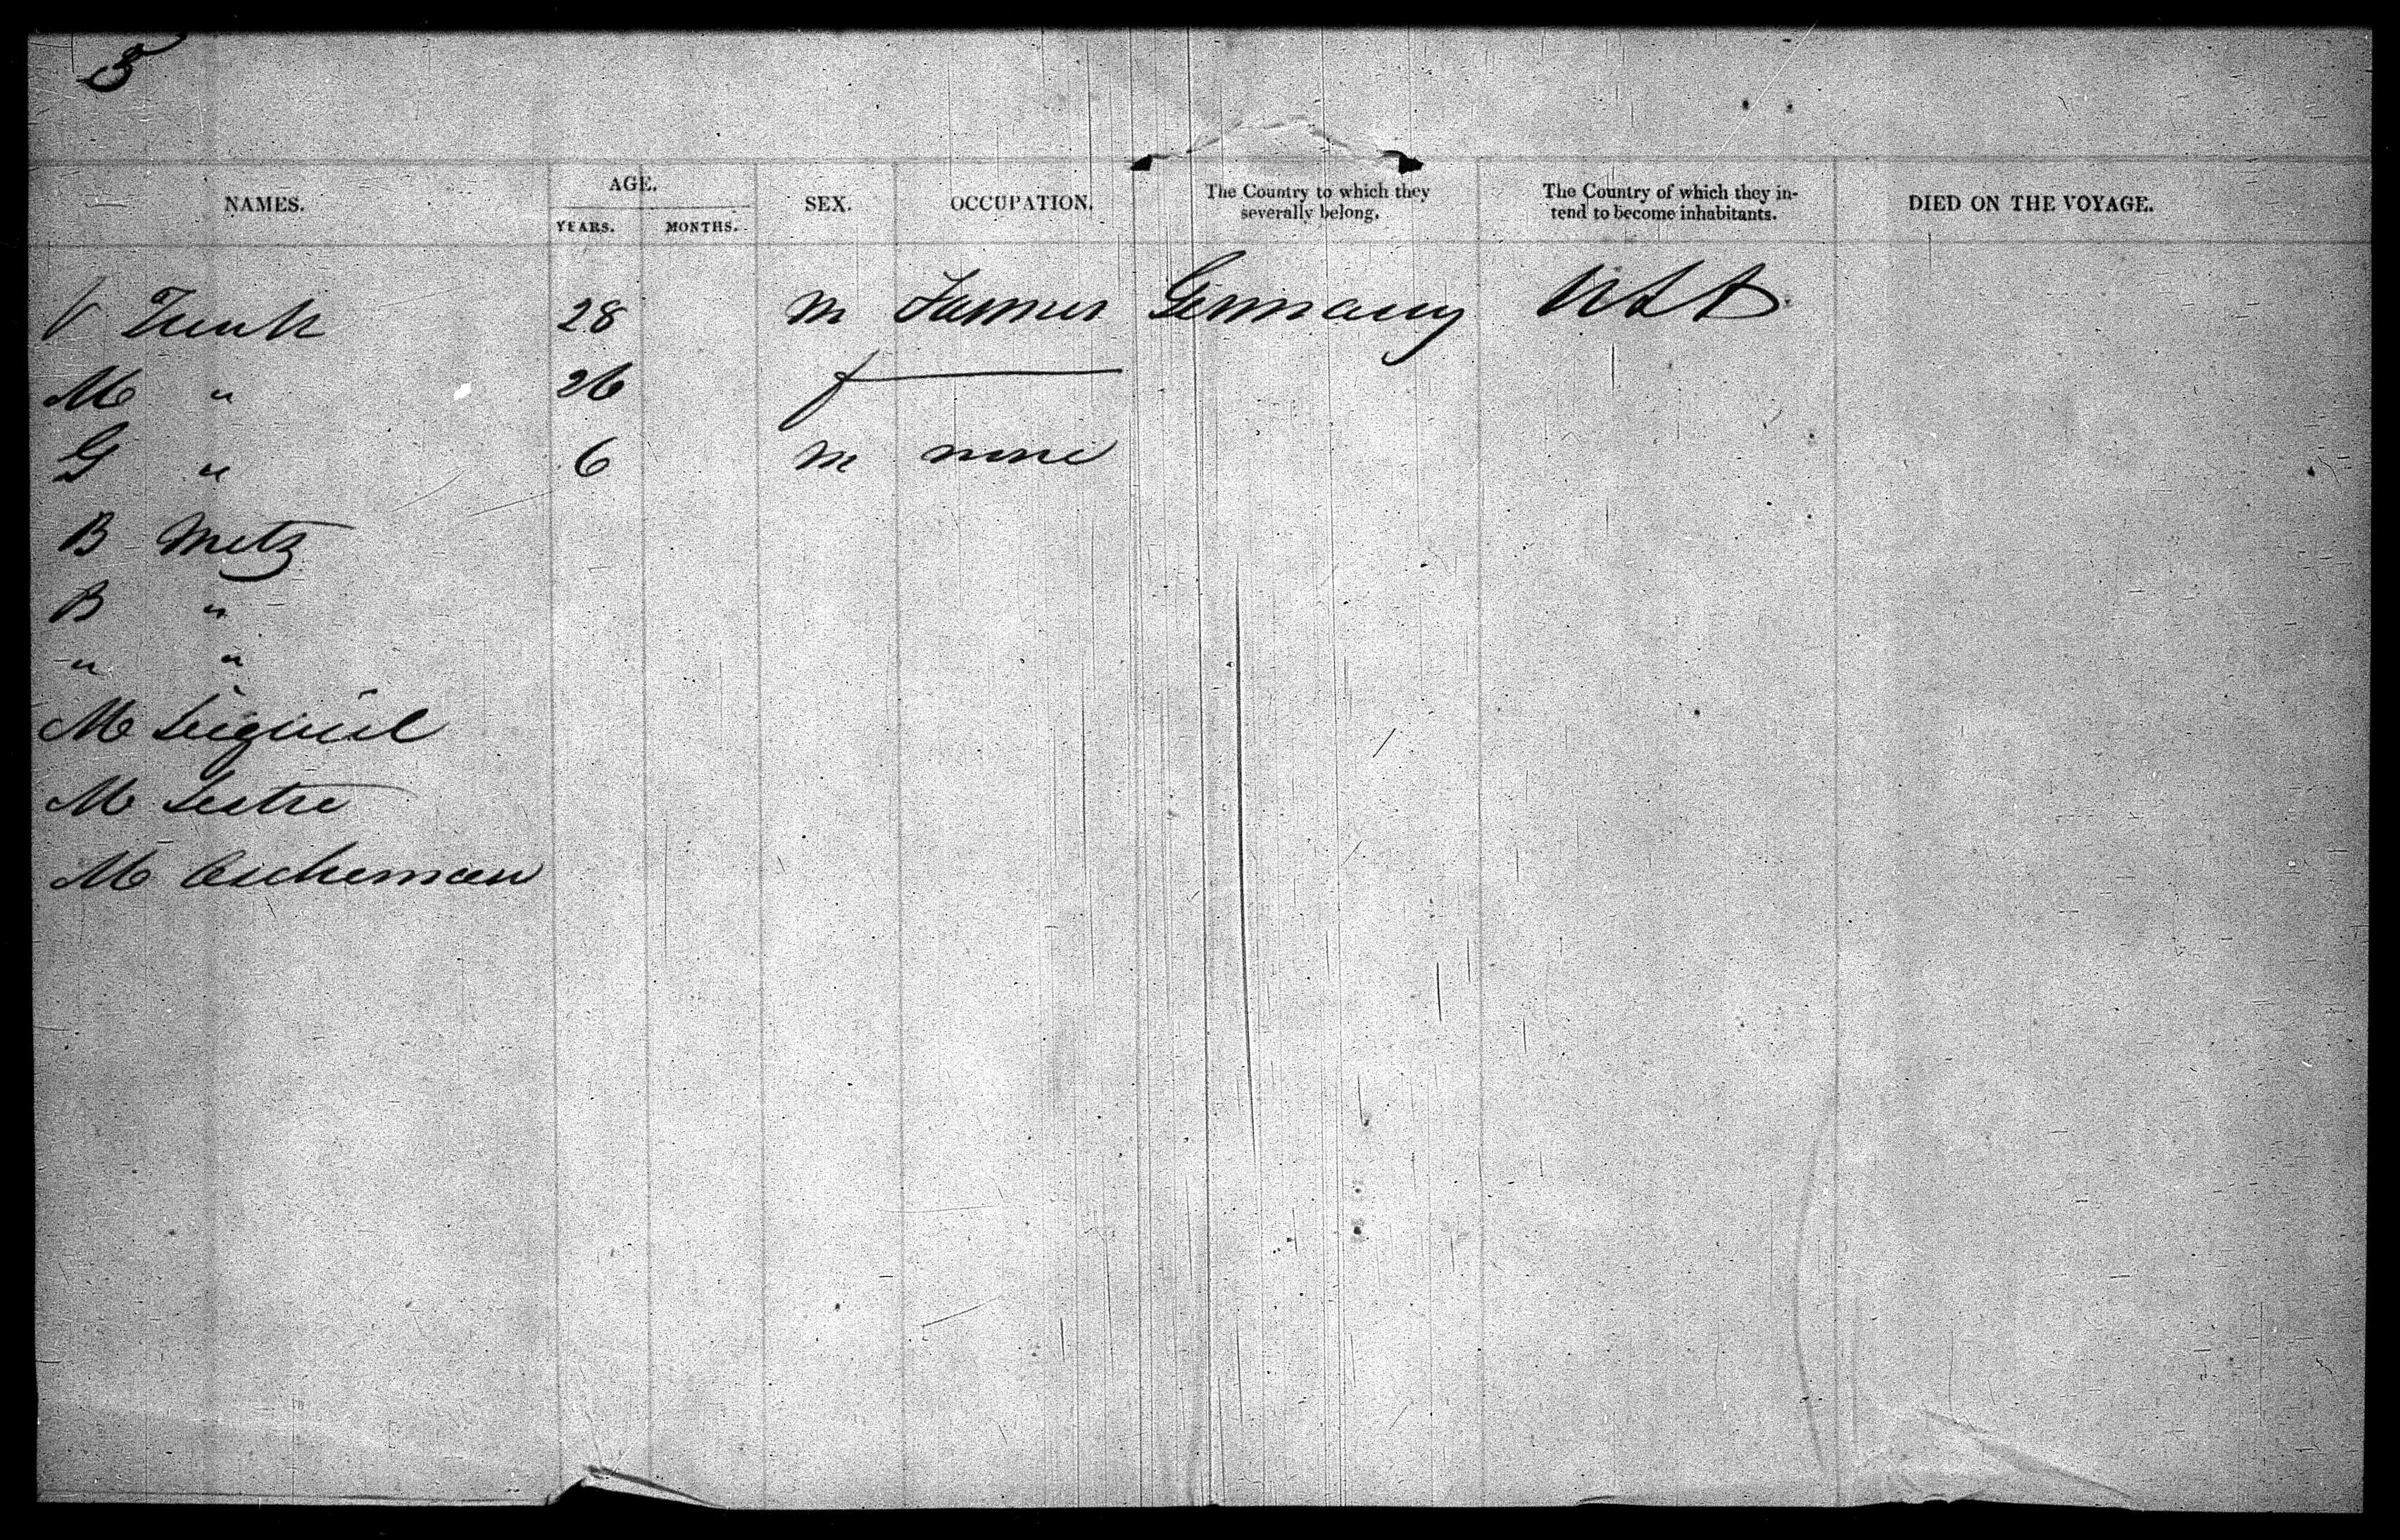 NAMES. AGE. SEX. OCCUPATION. The Country to which they severally belong. The Country of which they in-tend to become inhabitants. DIED ON THE VOYAGE.
YEARS. MONTHS.
V 28 m Farmer Germany USA
M " 26 f
G " 6 m none
B Metz
B "
" "
M
M
M